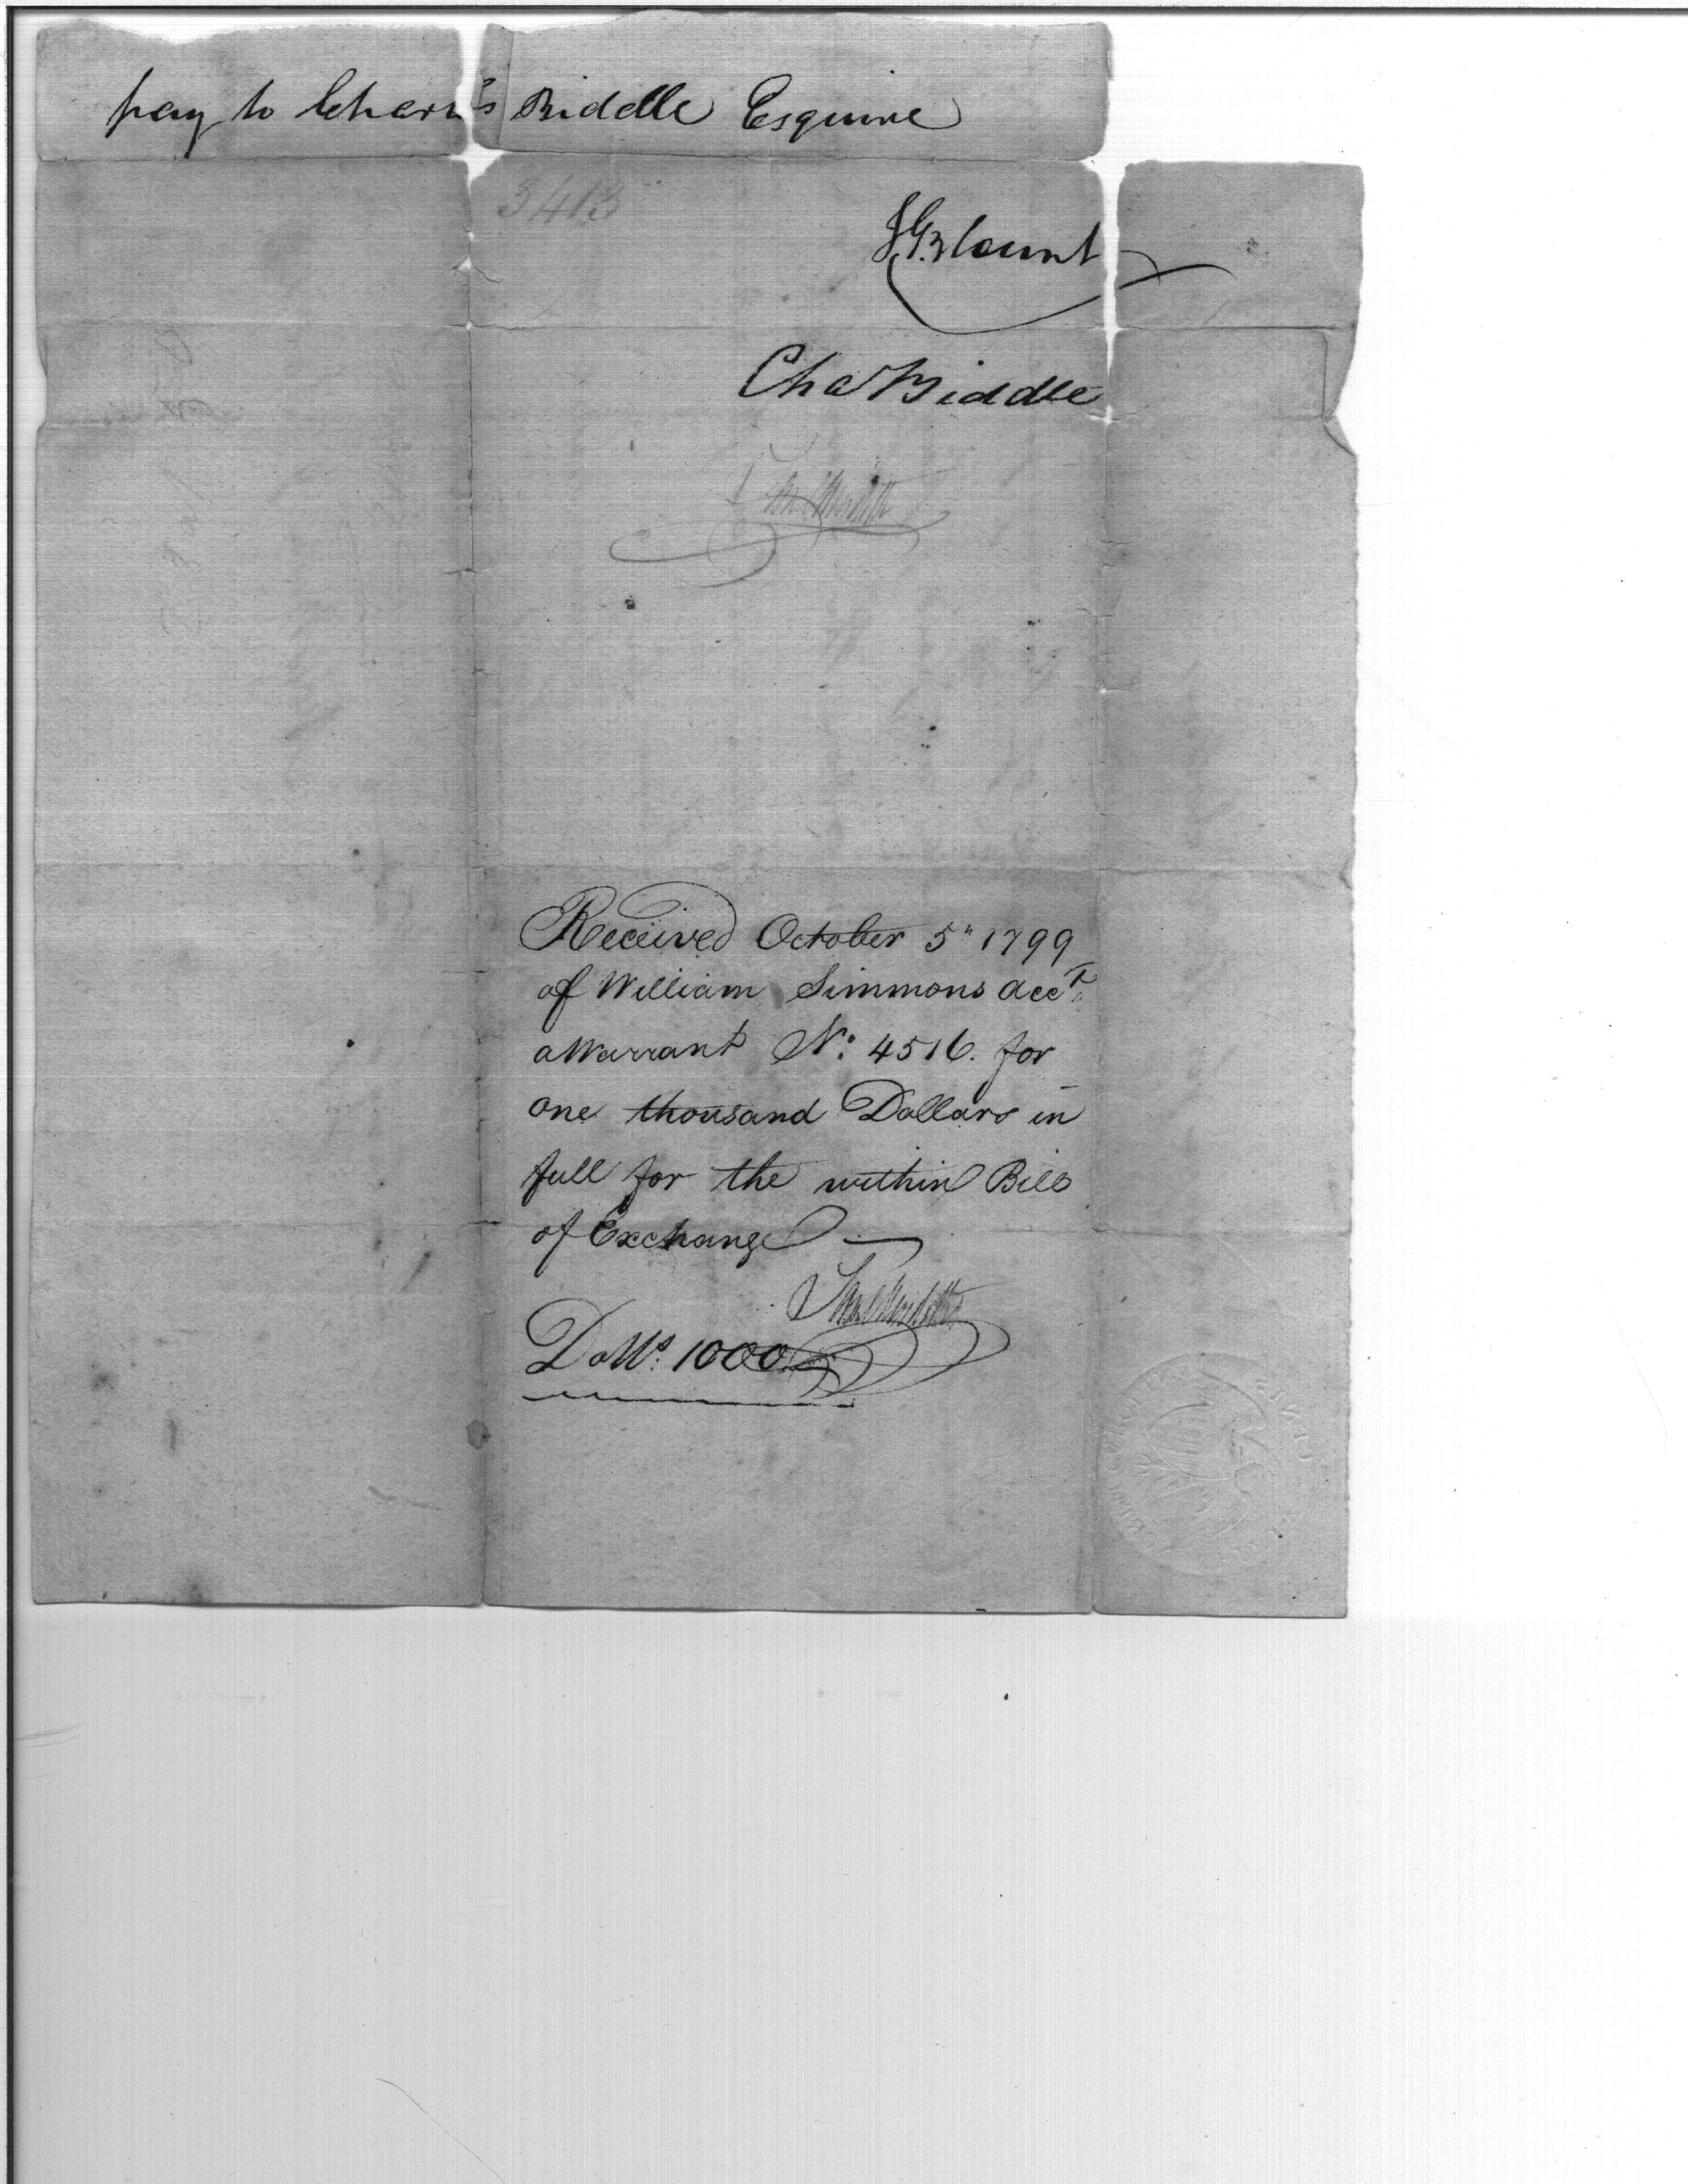 pay to Charls Biddle Esquire
3413
J G Blount
Chas Biddle
Saml Meredith
Received October 5" 1799
of William Simmons accT.
a Warrant No: 4516. for
one thousand Dollars in
full for the within Bill
of Exchange
Saml Meredith
Dolls. 1000